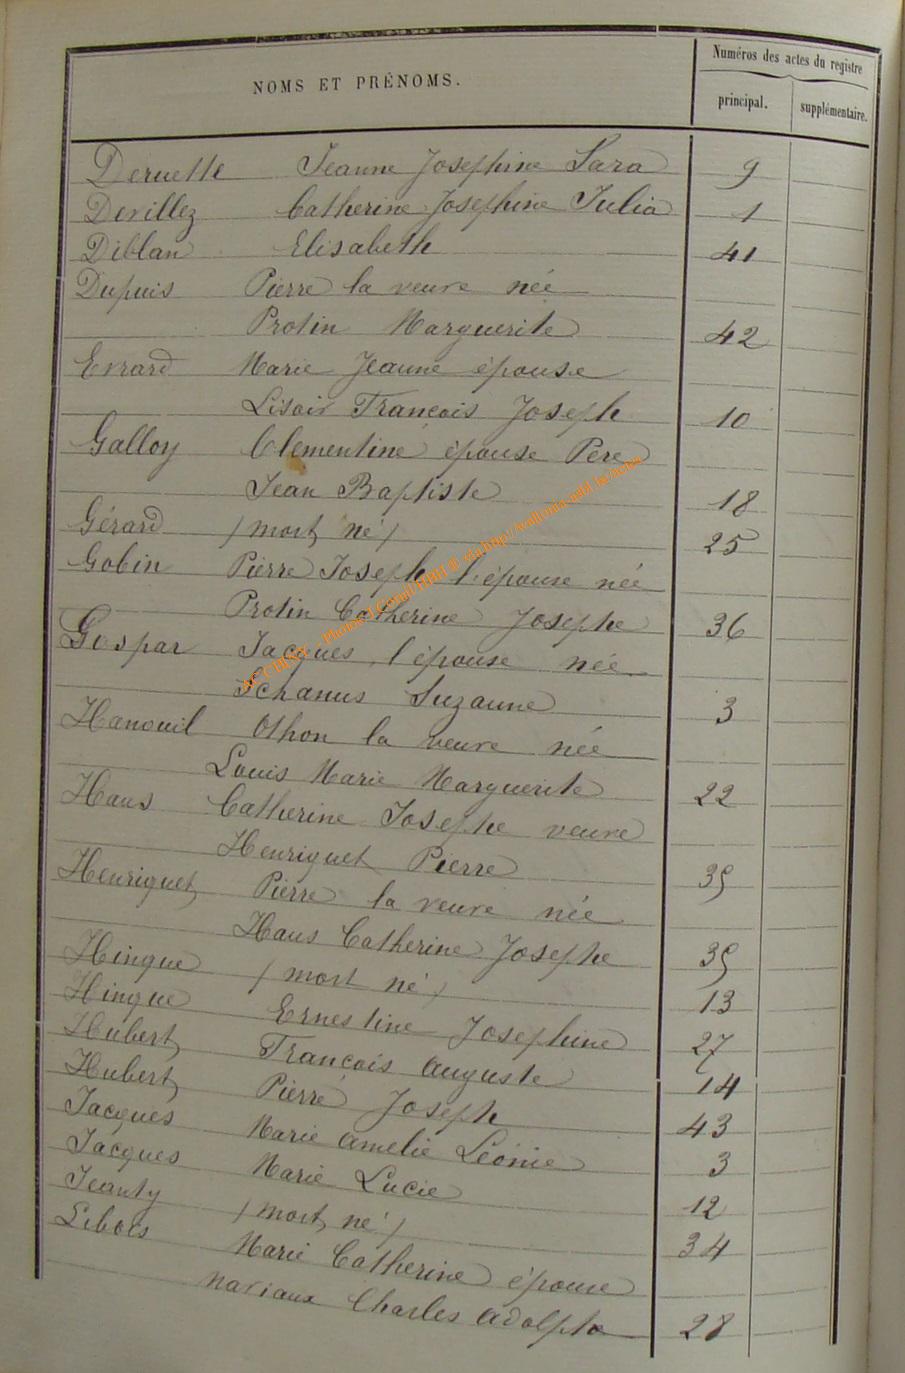 NOMS ET PRÉNOMS.
Numéros des actes du registre
principal. supplémentaire.
Deruette Jeanne Josephine Sara 9
Devillez Catherine Josephine Julia 1
Diblan Elisabeth 41
Dupuis Pierre la veuve née
Protin Marguerite 42
Evrard Marie Jeanne épouse
Lisoir Francois Joseph 10
Galloy Clementine épouse Pere
Jean Baptiste 18
Gérard (mort né) 25
Gobin Pierre Joseph l'épouse née
Protin Catherine Josephe 36
Gospar Jacques, l'épouse née
Schanus Suzanne 3
Hanouil Othon la veuve née
Louis Marie Marguerite 22
Haus Catherine Josephe veuve
Henriquet Pierre 35
Henriquet Pierre la veuve née
Haus Catherine Josephe 35
Hinque (mort né) 13
Hinque Ernestine Josephine 27
Hubert Francois Auguste 14
Hubert Pierre Joseph 43
Jacques Marie Amelie Léonie 3
Jacques Marie Lucie 12
Jeanty (mort né) 34
Libois Marie Catherine épouse
Nariaux Charles Adolphe 28